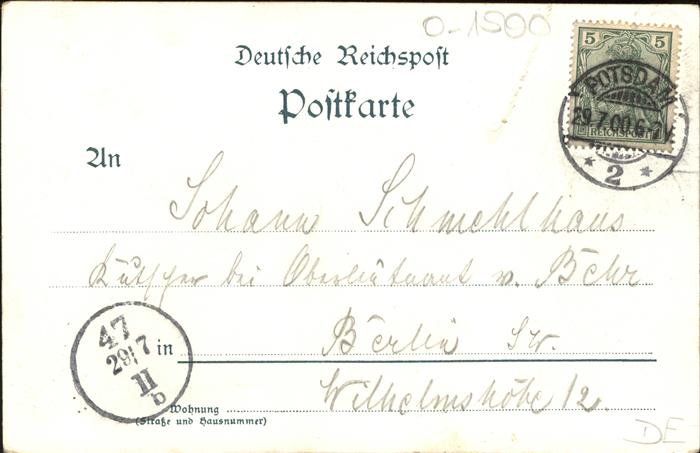 O-1500
Deutsche Reichspost
Postkarte
5 5
REICHSPOST
POTSDAM
29.7.00.6-7
* 2 *
An
Johann Schmehlhaus
Kutscher bei Oberleutnant v. Behr
in Berlin SW.
Wilhelmshöhe 12.
47
29/7
II
b
Wohnung
(Straße und Hausnummer)
DE